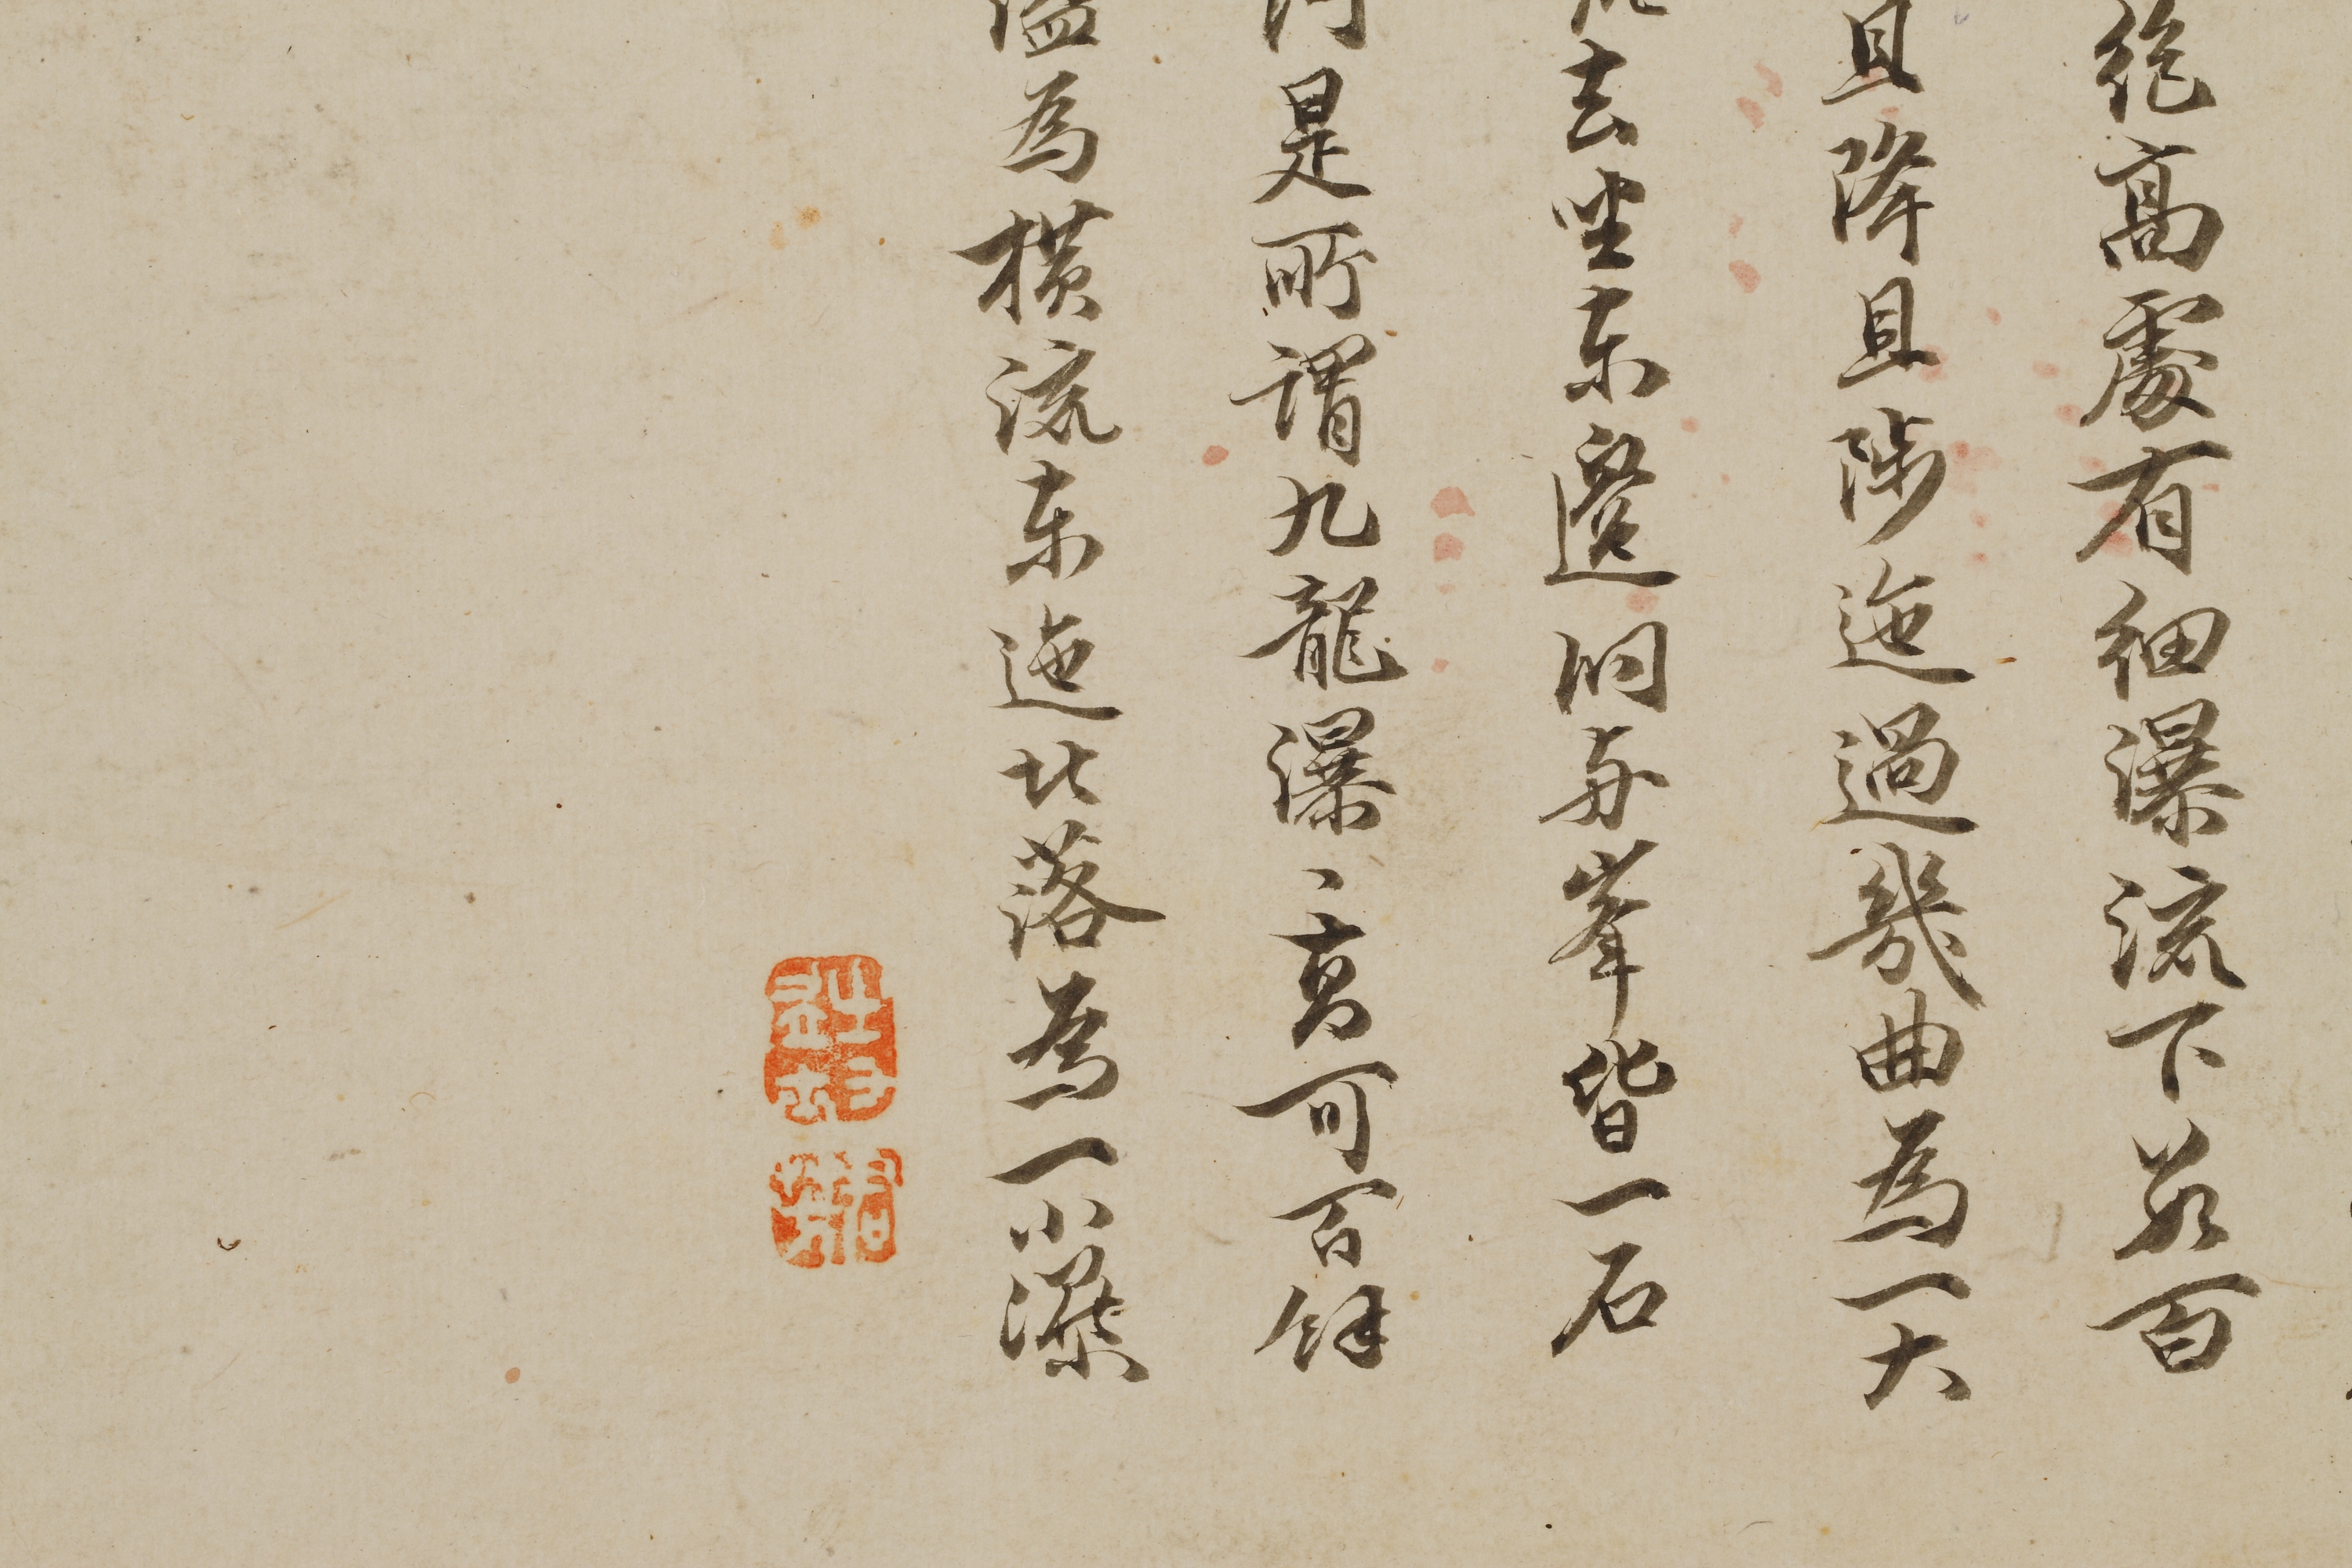 絶高處有細瀑流下若百
且降且陟迤過幾曲為一大
去坐東邊洞與峯皆一石
是所謂九龍瀑、高可百餘
為橫流東迤北落為一小潭